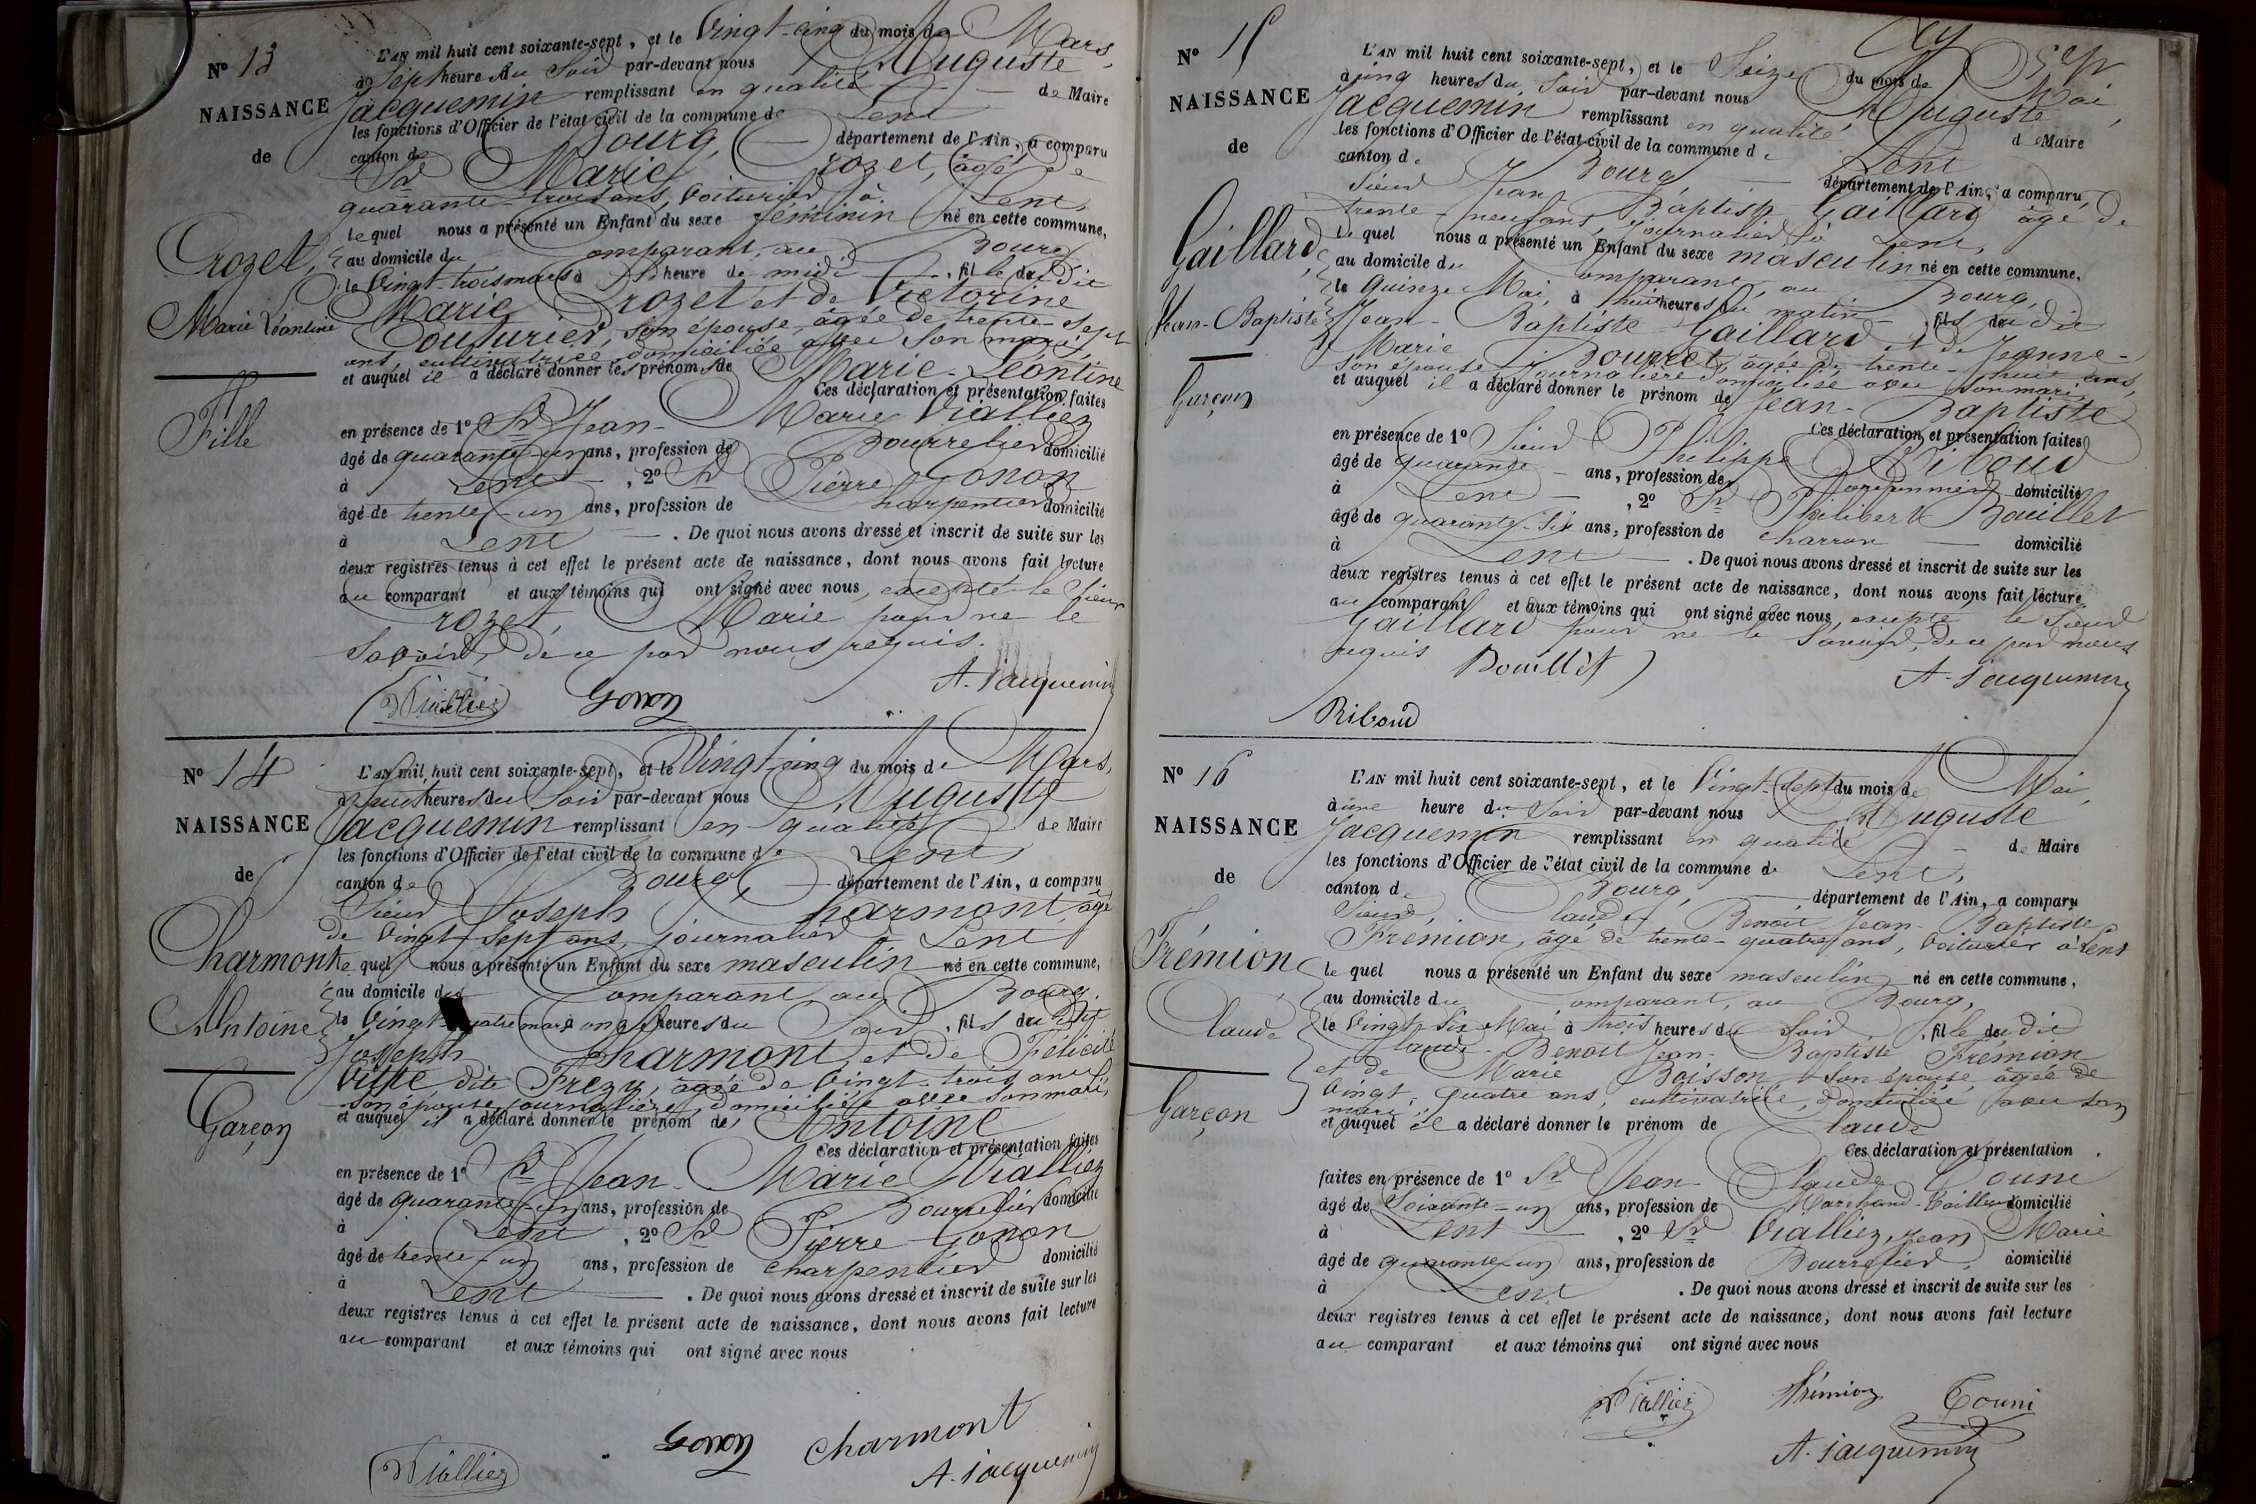 N° 13
NAISSANCE
de
Crozet,
Marie Léontine
Fille
L'AN mil huit cent soixante-sept, et le Vingt-cinq du mois de Mars,
à Sept heure du Soir par-devant nous Auguste
Jacquemin remplissant en qualité de Maire
les fonctions d'Officier de l'état civil de la commune de Lent
canton de Bourg, département de l'Ain, a comparu
Sr Marie Crozet, âgé de
quarante-trois ans, voiturier à Lent,
lequel nous a présenté un Enfant du sexe féminin né en cette commune,
au domicile du Comparant, au Bourg
le Vingt-trois mars à heure de midi, fille du dit
Marie Crozet et de Victorine
Couturier, son épouse, âgée de trente-sept
ans, cultivatrice, domiciliée avec son mari,
et auquel il a déclaré donner les prénoms de Marie-Léontine
Ces déclaration et présentation faites
en présence de 1° Sr Jean-Marie Vialliez
âgé de quarante-un ans, profession de Bourrelier domicilié
à Lent, 2° Sr Pierre Gonon
âgé de trente-un ans, profession de Charpentier domicilié
à Lent. De quoi nous avons dressé et inscrit de suite sur les
deux registres tenus à cet effet le présent acte de naissance, dont nous avons fait lecture
au comparant et aux témoins qui ont signé avec nous, excepté le Sieur
Crozet, Marie pour ne le
Savoir, de ce par nous requis.
Vialliez Gonon A. Jacquemin
N° 14
NAISSANCE
de
Charmont
Antoine
Garçon
L'AN mil huit cent soixante-sept, et le Vingt-cinq du mois de Mars,
à huit heures du Soir par-devant nous Auguste
Jacquemin remplissant en qualité de Maire
les fonctions d'Officier de l'état civil de la commune de Lent,
canton de Bourg, département de l'Ain, a comparu
Sieur Joseph Charmont, âgé
de Vingt-Sept ans, journalier à Lent
lequel nous a présenté un Enfant du sexe masculin né en cette commune,
au domicile du Comparant, au Bourg,
le Vingt-quatre mars à onze heures du Soir, fils du dit
Joseph Charmont, et de Félicité
dite Frezy, âgée de Vingt-trois ans
son épouse, journalière, domiciliée avec son mari,
et auquel il a déclaré donner le prénom de Antoine
Ces déclaration et présentation faites
en présence de 1° Sr Jean-Marie Vialliez
âgé de quarante-un ans, profession de Bourrelier domicilié
à Lent, 2° Sr Pierre Gonon
âgé de trente-un ans, profession de Charpentier domicilié
à Lent. De quoi nous avons dressé et inscrit de suite sur les
deux registres tenus à cet effet le présent acte de naissance, dont nous avons fait lecture
au comparant et aux témoins qui ont signé avec nous
Gonon Charmont
Vialliez A. Jacquemin
N° 15
NAISSANCE
de
Gaillard,
Jean-Baptiste
Garçon
L'AN mil huit cent soixante-sept, et le Seize du mois de Mai,
à cinq heures du Soir par-devant nous Auguste
Jacquemin remplissant en qualité de Maire
les fonctions d'Officier de l'état civil de la commune de Lent
canton de Bourg département de l'Ain, a comparu,
Sieur Jean Baptiste Gaillard âgé de
trente-neuf ans, journalier à Lent,
lequel nous a présenté un Enfant du sexe masculin né en cette commune.
au domicile du Comparant, au Bourg,
le Quinze Mai, à huit heures du matin, fils du dit
Jean-Baptiste Gaillard et de Jeanne-
Marie Bourret, âgée de trente-huit ans,
son épouse, journalière domiciliée avec son mari,
et auquel il a déclaré donner le prénom de Jean-Baptiste
Ces déclaration et présentation faites
en présence de 1° Sieur Philippe Riboud
âgé de quarante ans, profession de Cordonnier domicilié
à Lent, 2° Sr Philibert Bouillet
âgé de quarante-six ans, profession de Charron domicilié
à Lent. De quoi nous avons dressé et inscrit de suite sur les
deux registres tenus à cet effet le présent acte de naissance, dont nous avons fait lecture
au comparant et aux témoins qui ont signé avec nous, excepté le Sieur
Gaillard pour ne le Savoir, de ce par nous
requis Bouillet A. Jacquemin
Riboud
N° 16
NAISSANCE
de
Frémion
Claude
Garçon
L'AN mil huit cent soixante-sept, et le Vingt-Sept du mois de Mai,
à une heure du Soir par-devant nous Auguste
Jacquemin remplissant en qualité de Maire
les fonctions d'Officier de l'état civil de la commune de Lent,
canton de Bourg, département de l'Ain, a comparu
Sieur, Claude Benoit Jean-Baptiste
Frémion, âgé de trente-quatre ans, voiturier à Lent
lequel nous a présenté un Enfant du sexe masculin né en cette commune,
au domicile du Comparant, au Bourg,
le Vingt-Six Mai à trois heures du Soir, fils du dit
Claude-Benoit Jean-Baptiste Frémion
et de Marie Boisson son épouse âgée de
Vingt-quatre ans, cultivatrice, domiciliée avec son
mari
et auquel il a déclaré donner le prénom de Claude
Ces déclaration et présentation
faites en présence de 1° Sr Jean Claude Touni
âgé de Soixante-un ans, profession de Marchand-Tailleur domicilié
à Lent, 2° Sr Vialliez, Jean Marie
âgé de quarante-un ans, profession de Bourrelier, domicilié
à Lent. De quoi nous avons dressé et inscrit de suite sur les
deux registres tenus à cet effet le présent acte de naissance, dont nous avons fait lecture
au comparant et aux témoins qui ont signé avec nous
Vialliez Frémion Touni
A. Jacquemin